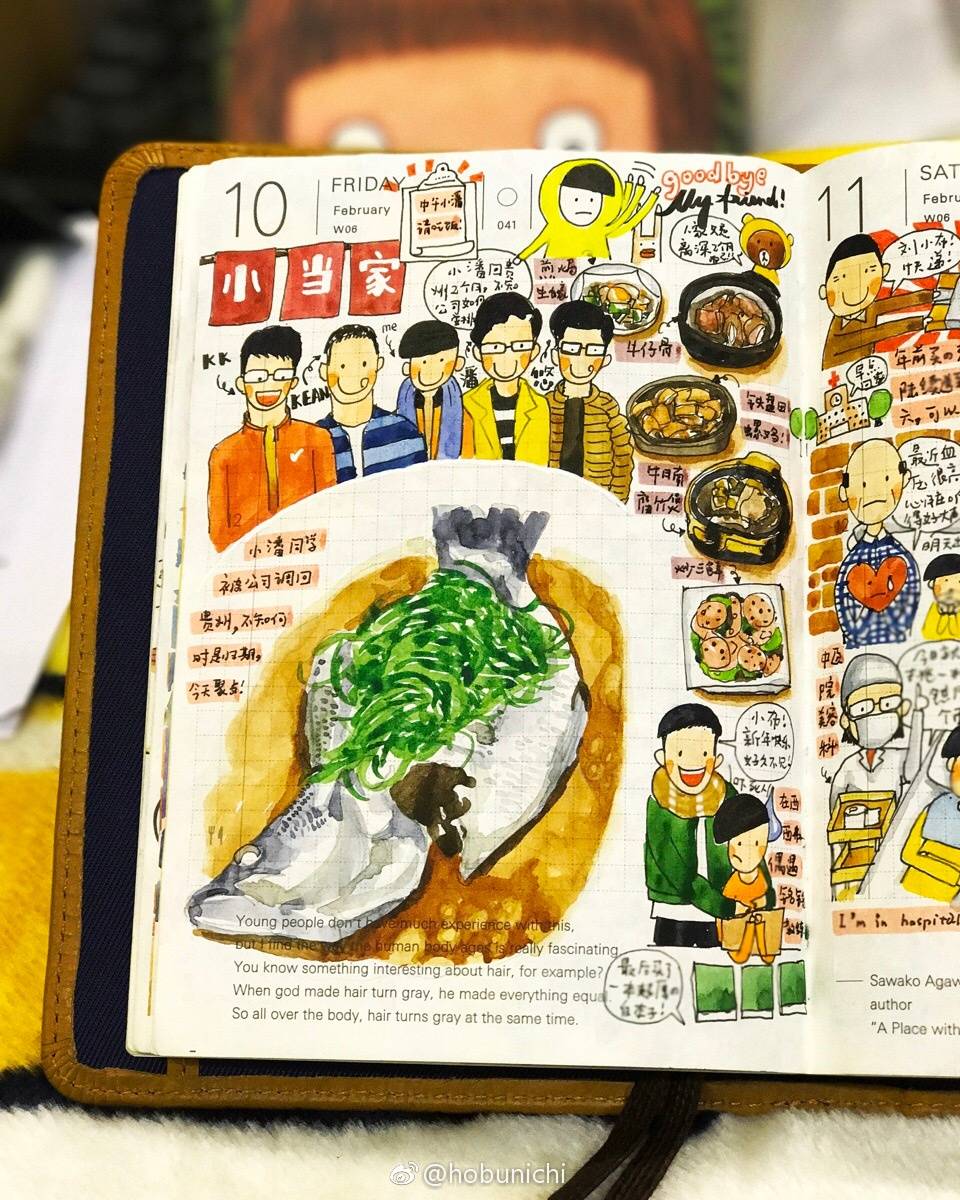 10
FRIDAY
February
W06
中午小潘
请吃饭!
041
goodbye
My friend!
小当家
小潘回贵
州2个月,不知
公司如何
安排
离深2个月
生蚝
牛仔骨
KK
KEAN
me
潘
铁盘田
螺鸡!
牛白腩
腐竹煲
炒三鲜
小潘同学
被公司调回
贵州,不知何
时是归期,
今天聚点!
小布!
新年快乐
好久不见!
吓死人
在西
西弗
偶遇
铭铭
教练
最后买了
一本超厚の
Young people don't have much experience with this,
but I find the way the human body ages is really fascinating.
You know something interesting about hair, for example?
When god made hair turn gray, he made everything equal.
So all over the body, hair turns gray at the same time.
11
SAT
Febru
W06
刘小布!
快递!
年前买の
陆续送
六,可以
最近血
压很高
心脏
得好大声
明天
中医
院
科
今日
I'm in hospital
Sawako Agaw
author
"A Place with
@hobunichi